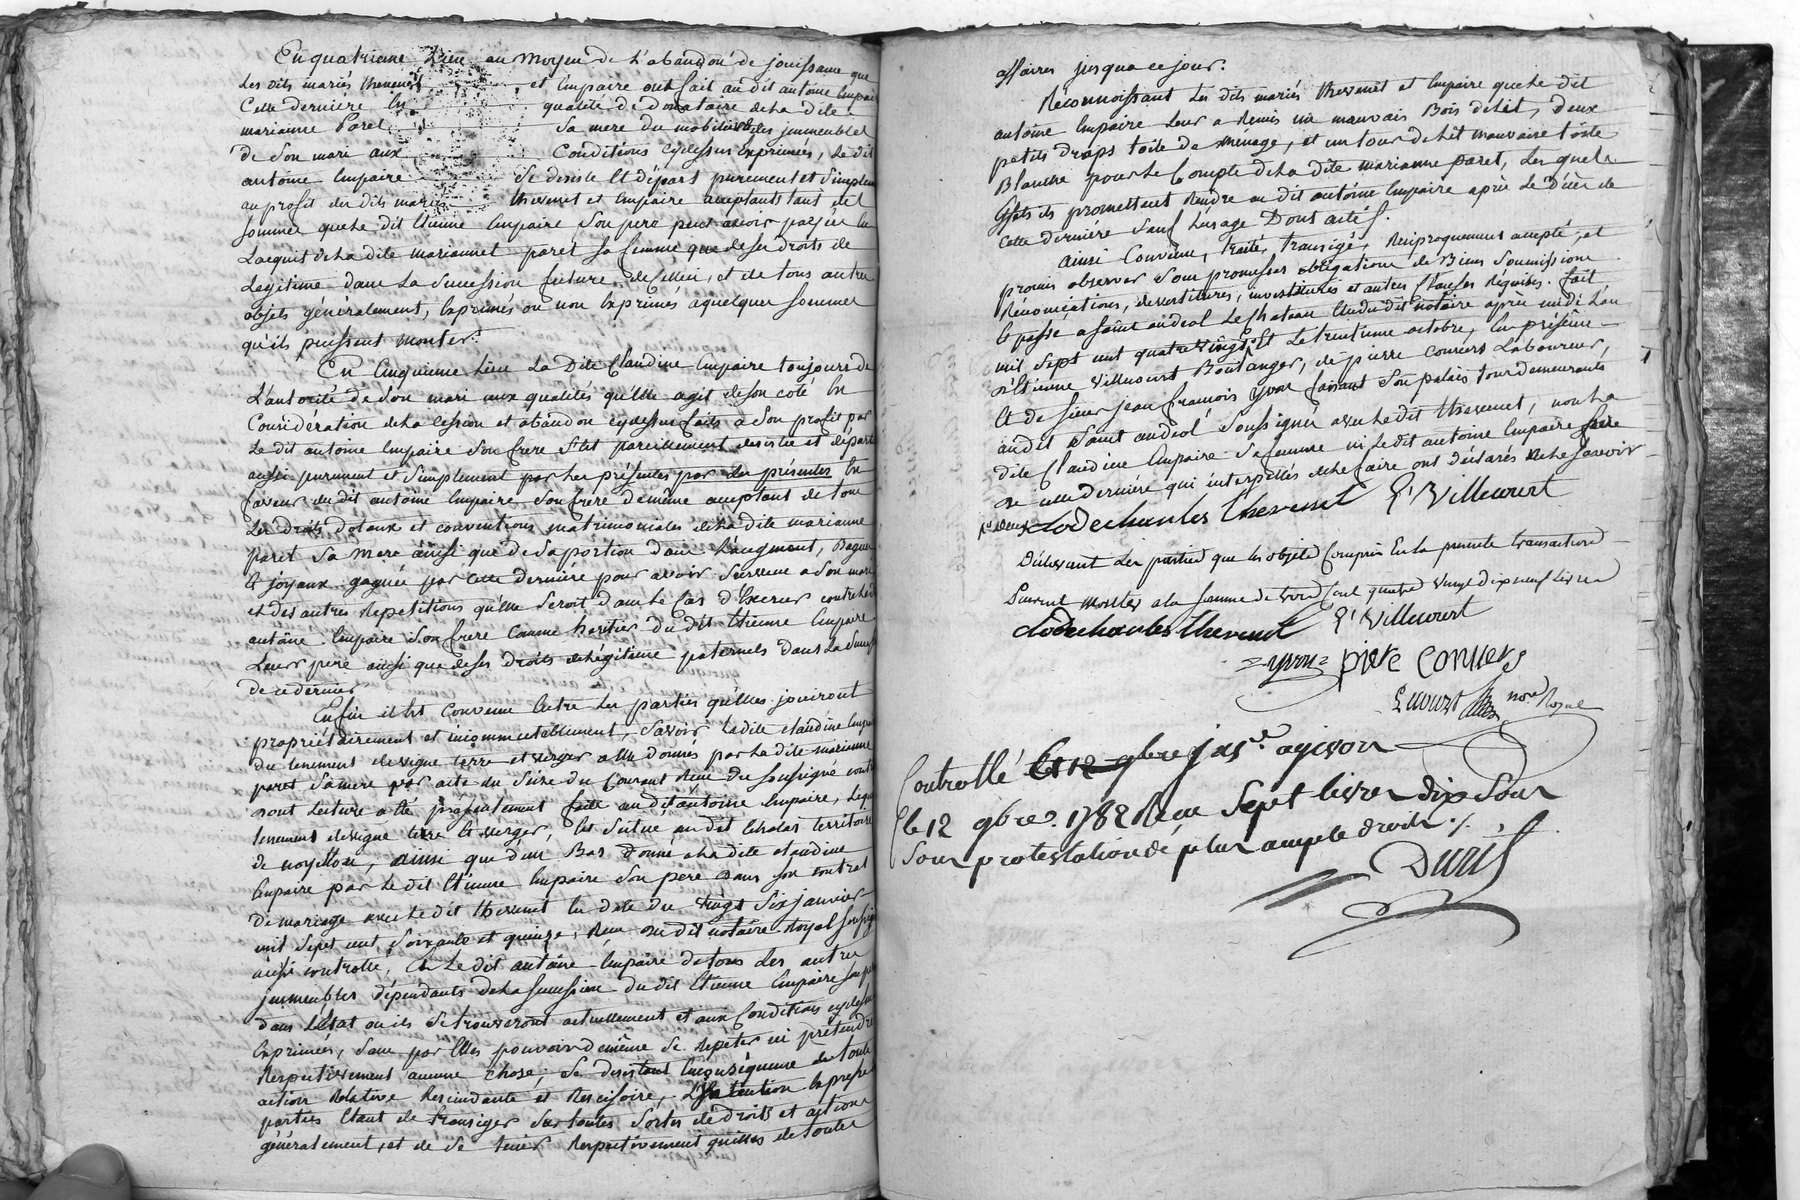 En quatrieme Lieu au moyen de L'abandon de jouissance que
Les dits mariés thevenet et Empaire ont fait au dit antoine Empaire
Cette derniere En qualité de Donataire de la dite
marianne Paret Sa mere du mobilier et des immeubles
de Son mari aux Conditions cydessus Exprimées, Le dit
antoine Empaire Se desiste Et départ purement et Simplem
au profit des dits mariés thevenet et Empaire acceptants tant des
Sommes que le dit Etienne Empaire Son pere peut avoir payées en
L'acquit de la dite marianne paret Sa femme que de ses droits de
Légitime dans La Succession future de celui, et de tous autres
objets généralement, Exprimés ou non Exprimés a quelques Sommes
qu'ils puissent monter.
En Cinquieme Lieu La Dite Claudine Empaire toujours de
L'autorité de Son mari aux qualités qu'elle agit de son coté En
Considération de la Cession et abandon cydessus faits a Son profit par
Le dit antoine Empaire Son frere S'est pareillement desistée et départie
aussi purement et Simplement par les présentes par les présentes En
faveur du dit antoine Empaire Son frere de même acceptant de tous
Les Droits Dotaux et conventions matrimoniales de la dite marianne
paret Sa mere ainsi que de Sa portion dans L'augment, Bagues
& joyaux gagnée par cette derniére pour avoir Survecu a Son mari
et des autres Repetitions qu'elle Seroit dans le Cas d'Exercer contre le dit
antoine Empaire Son frere Comme heritier du dit Etienne Empaire
Leur pere ainsi que de ses droits de Légitime paternels dans La Succes
de ce dernier
Enfin il Est convenu Entre Les parties qu'elles jouiront
propriétairement et incommutablement, Savoir Ladite Claudine Empaire
du tenement de vigne terre et verger a elle donnés par La dite marianne
paret Sa mere par acte du Seize du Courant Reçu du Soussigné cont
dont Lecture a été présentement faite au dit antoine Empaire, Lequel
tenement de vigne terre & verger, Est Situé au dit territoire
de noyllou, ainsi que d'un Bas Donné a la dite Claudine
Empaire par Le dit Etienne Empaire Son pere dans son contrat
De mariage avec Le dit thevenet En date du vingt Six janvier
mil Sept cent Soixante et quinze, Reçu du dit notaire Royal Soussigné
aussi controllé, Et Le dit antoine Empaire de tous Les autres
jmmeubles dépendants de la Succession du dit Etienne Empaire Son pere
dans L'Etat ou ils Se trouveront actuellement et aux Conditions cydessus
Exprimées, Sans par Elles pouvoir de même Se Repeter ni prétendre
Respectivement aucune chose, Se desistant En conséquence de toute
action Relative Rescindante et Rescisoire, L'intention Expresse
parties Etant de transiger Sur toutes Sortes de Droits et actions
généralement, et de Se tenir Respectivement quittes de toutes
affaires jusqua ce jour.
Reconnoissant Les dits mariés thevenet et Empaire que le dit
antoine Empaire Leur a Remis un mauvais Bois de Lit, deux
petits draps toile de ménage, et un tour de Lit mauvaise toile
Blanche pour le Compte de la dite marianne paret, Les quels
Effets ils promettent Rendre au dit antoine Empaire après Le Décès de
cette derniére Sauf L'usage Dont acte.
ainsi Convenu, traité, transigé, Réciproquement accepté, et
promis observer Sous promesses obligations de Biens Soumissions
Rénonciations, devestitures, investitures et autres Clauses Réquises. fait
& passé a Saint andeol Le Chateau Etude dudit notaire après midi L'an
mil Sept cent quatre vingt Et Le trentieme octobre, En présence
d'Etienne Villecourt Boulanger, de pierre convers Laboureur,
Et de Sieur Jean francois yvon faisant Son palais tous demeurants
audit Saint andeol Soussignés avec Le dit thevenet, non La
dite Claudine Empaire Sa femme ni Le dit antoine Empaire frere
de cette derniére qui interpellés de le faire ont déclarés ne le Savoir
Claude charles thevenet E' Villecourt
Déclarant Les parties que Les objets Compris En la présente transaction
Peuvent monter a la Somme de cent quatre vingt dix neuf Livres
Claude charles thevenet E' Villecourt
=yvon= piere conuers
Lacourt no.re Royal
Controllé Le 12 9bre jas.e a givors
le 12 9bre. 1782 Recu Sept livres dix Sous
Sous protestation de plus ample droits ./.
Duril